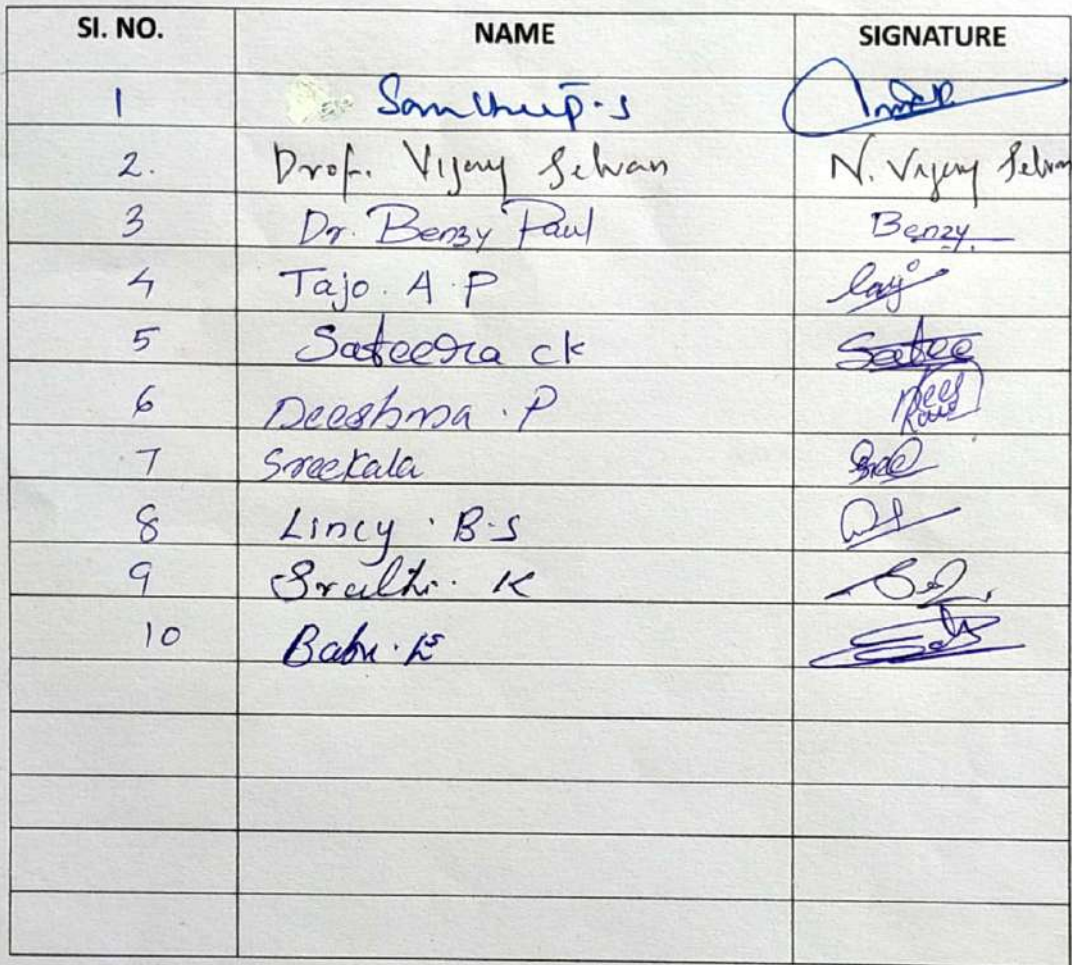 SI. NO. NAME SIGNATURE
1 Santhup.s
2. Prof. Vijay Selvan N. Vijay Selvan
3 Dr. Benzy Paul Benzy
4 Tajo. A. P
5 Safeera ck Safee
6 Deeshma. P
7 Sreekala Sree
8 Lincy. B.S
9 Sruthi. K
10 Babu.